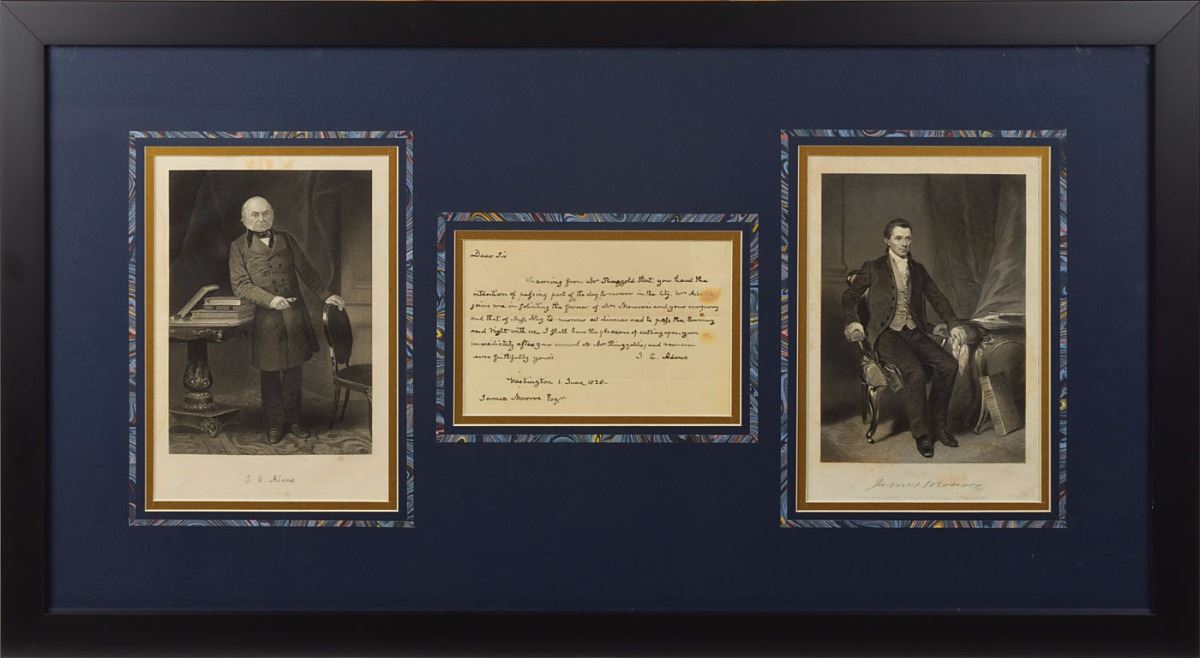 J. Q. Adams
Dear Sir
Learning from Mr Ringgold that you have the
intention of passing part of the day tomorrow in the City. Mrs
joins me in soliciting the favour of Mrs Monroe's and your company
and that of Miss Hay to-morrow at dinner and to pass the Evening
and Night with us. I shall have the pleasure of calling upon you
immediately after your arrival at Mr Ringgold's, and remain
ever faithfully yours J. Q. Adams
Washington 1. June
James Monroe Esqr
James Monroe